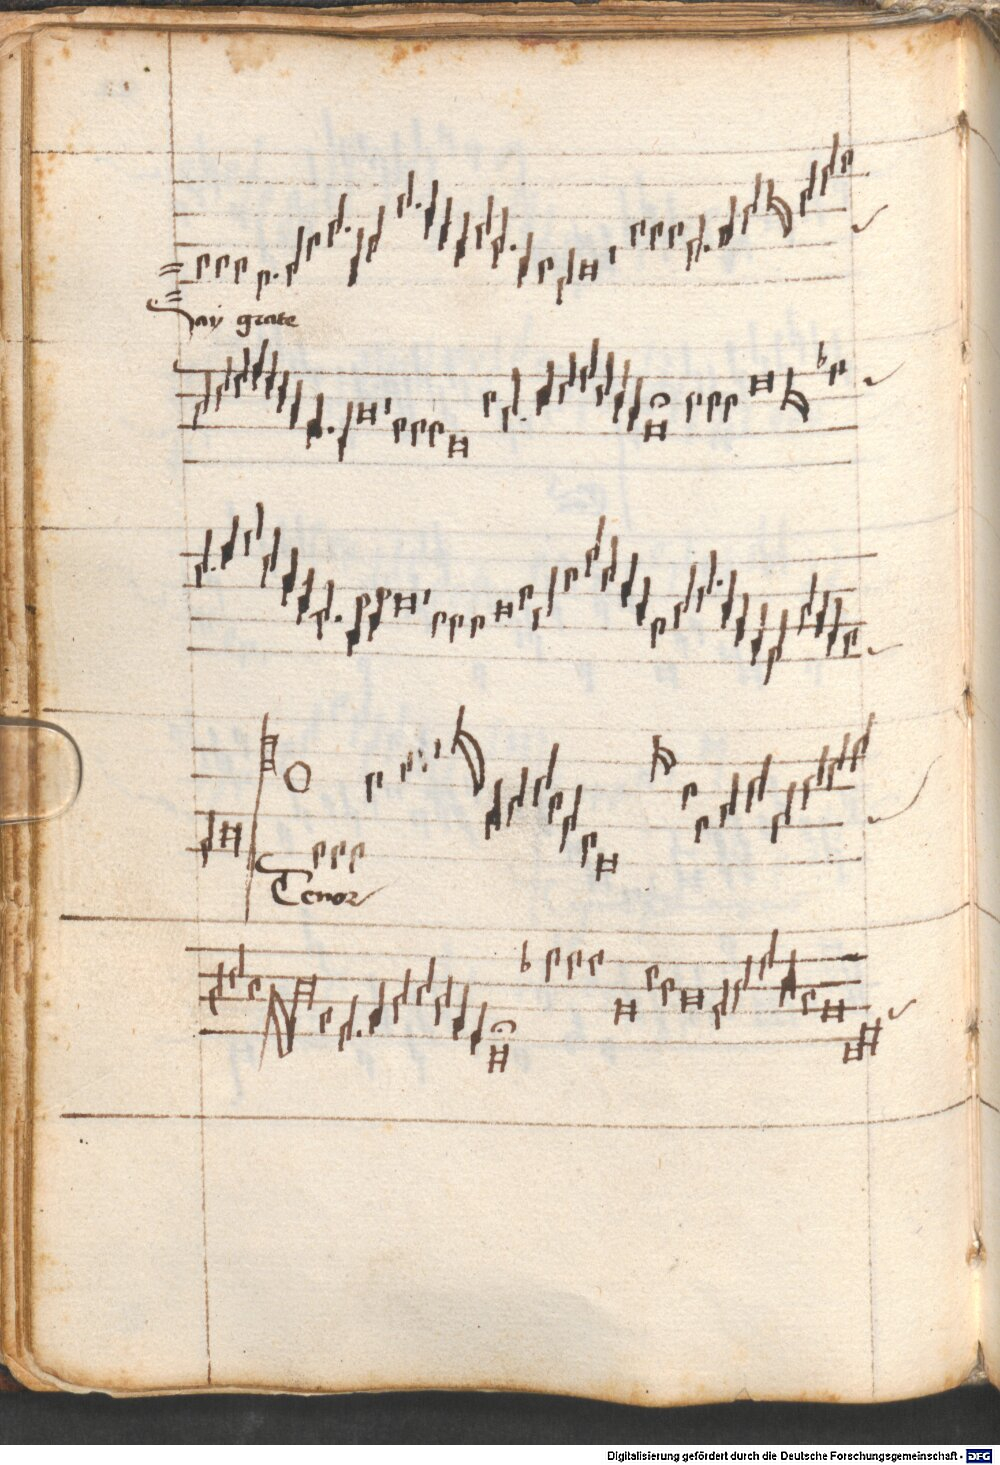 Jay grate
Tenor
Digitalisierung gefördert durch die Deutsche Forschungsgemeinschaft - DFG